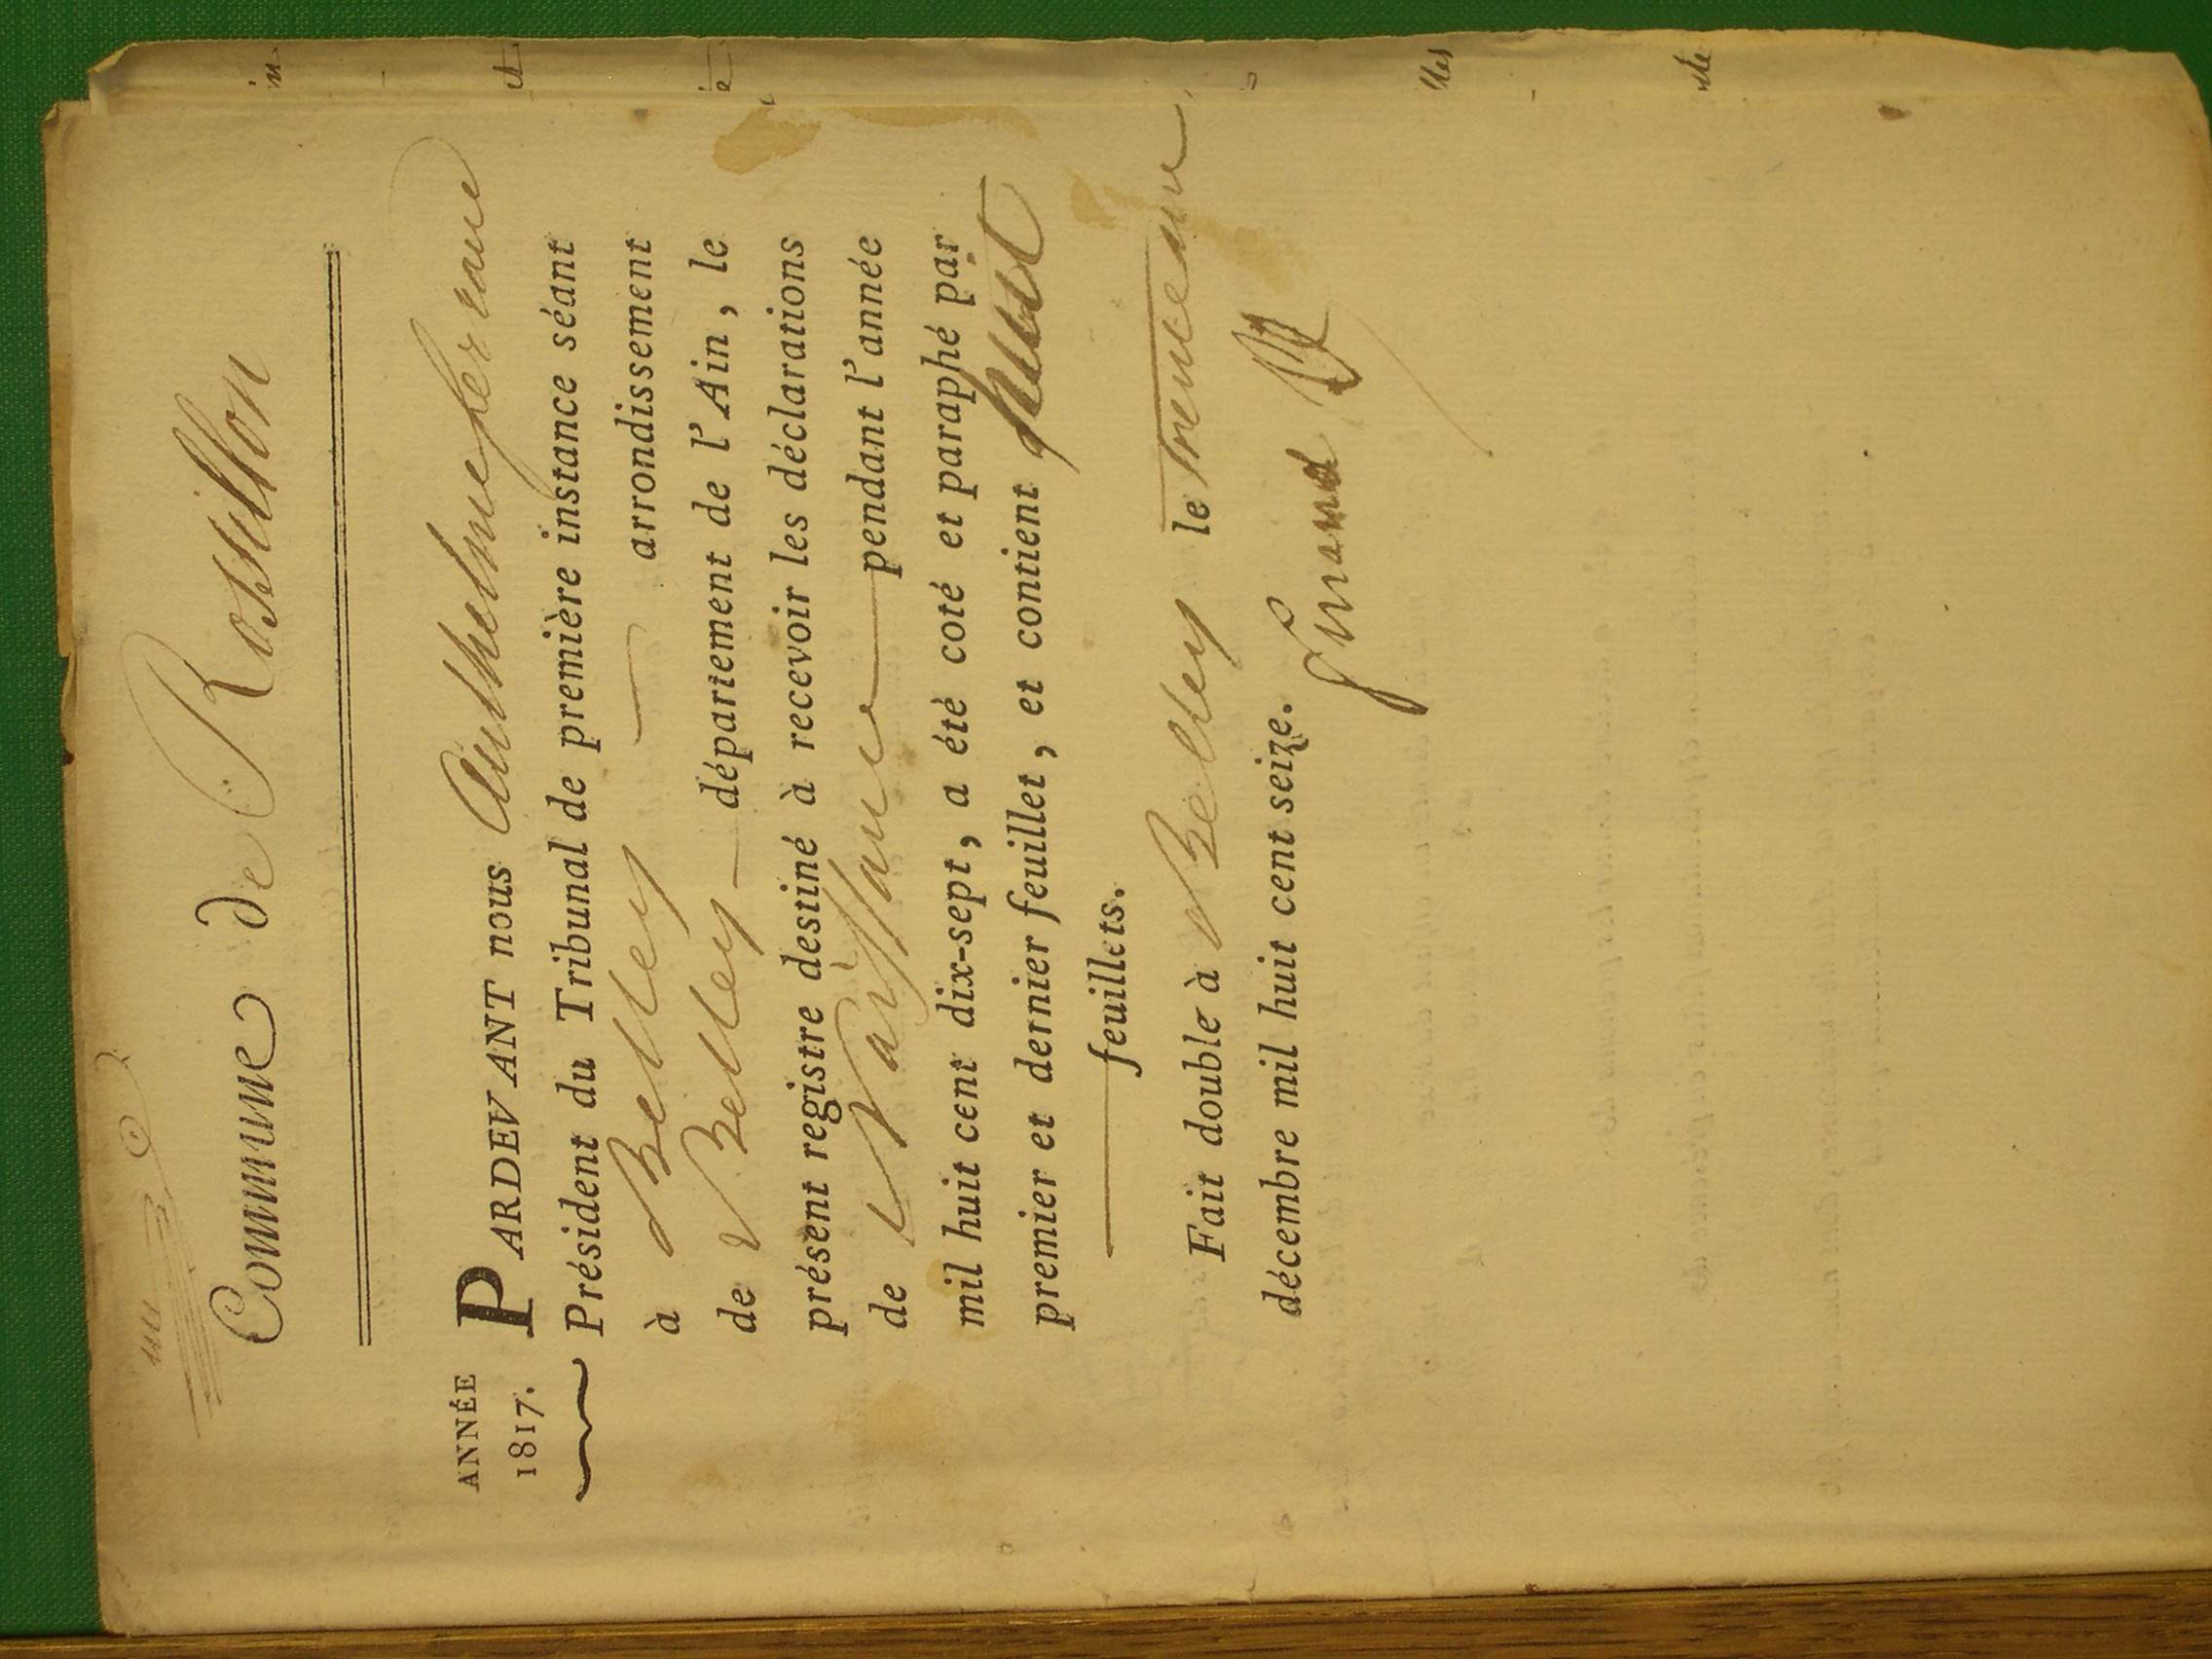 Commune de Rossillon
ANNÉE
1817.
PARDEVANT nous Anthelme ferrand
Président du Tribunal de première instance séant
à Belley arrondissement
de Belley département de l'Ain, le
présent registre destiné à recevoir les déclarations
de Naissance pendant l'année
mil huit cent dix-sept, a été coté et paraphé par
premier et dernier feuillet, et contient huit
feuillets.
Fait double à Belley le trente un
décembre mil huit cent seize.